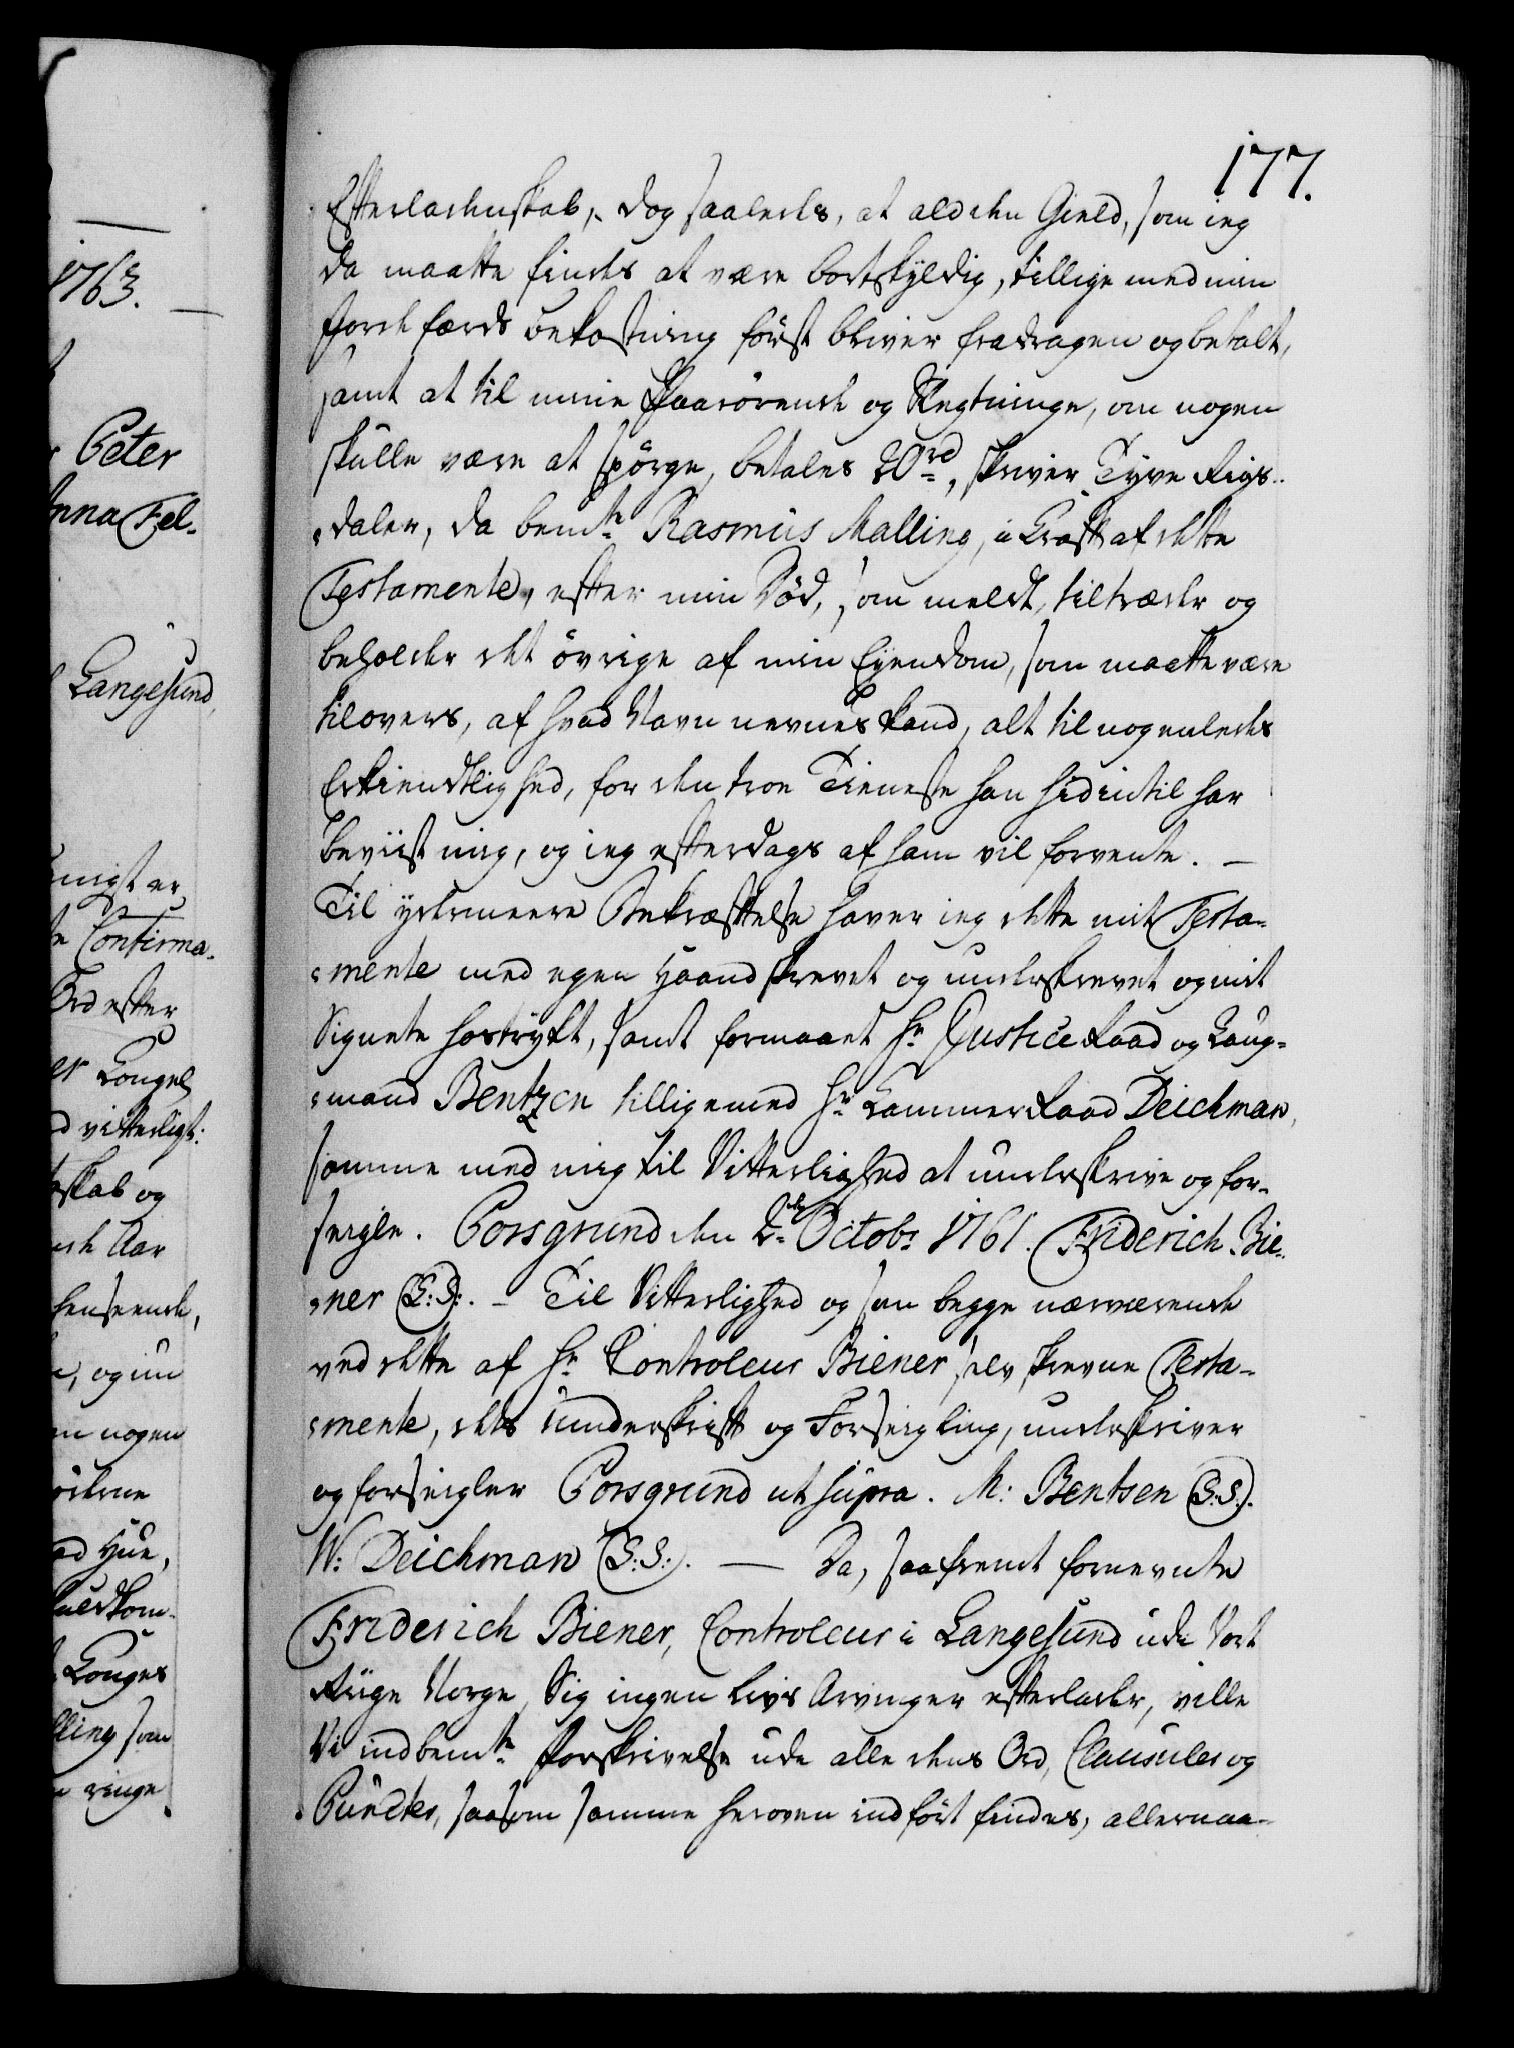 177.
Efterladenskab, dog saaledes, at ald den Gield, som ieg
da maatte findes at være bortskyldig, tillige med min
Jordefærds bekostning först bliver fradragen og betalt,
samt at til mine Paarörende og Slegtninge, om nogen
skulle være at spörge, betales 20 rd, skriver Tyve Rigs-
daler, da bemte Rasmus Malling, i Kraft af dette
Testamente, efter min Död, som meldt, tiltræder og
beholder det övrige af min Eyendom, som maatte være
tilovers, af hvad Navn nevnes kand, alt til nogenledes
Erkiendtlighed, for den troe Tieneste han hidindtil har
beviist mig, og ieg efterdags af ham vil forvente. —
Til ydermeere Bekræftelse haver ieg dette mit Testa-
mente med egen Haand skrevet og underskrevet og mit
Signete hostrykt, samt formaaet Hr Justice Raad og Laug-
mand Bentzen tilligemed Hr Cammer Raad Deichman,
samme med mig til Vitterlighed at underskrive og for-
seigle. Porsgrund den 2de Octobr 1761. Friderich Bie-
ner (L:S:). — Til Vitterlighed og som begge nærværende
ved dette af Hr Controleur Biener selv skrevne Testa-
mente, dets Underskrift og Forseigling, underskriver
og forseigler Porsgrund ut supra. M: Bentsen (L:S:).
W: Deichman (L:S:). — Da, saafremt fornevnte
Friderich Biener, Controleur i Langesund udi Vort
Riige Norge, Sig ingen Livs Arvinger efterlader, ville
Vi indbemte Forskrivelse udi alle dens Ord, Clausuler og
Puncter, saasom samme heroven indfört findes, allernaa-
1763.
Peter
Anna Fel-
Langesund,
Confirma-
Ord efter
Longel
vitterligt:
skab og
Aar
henseende,
og nogen
Hue,
Longes
lling som
ringe